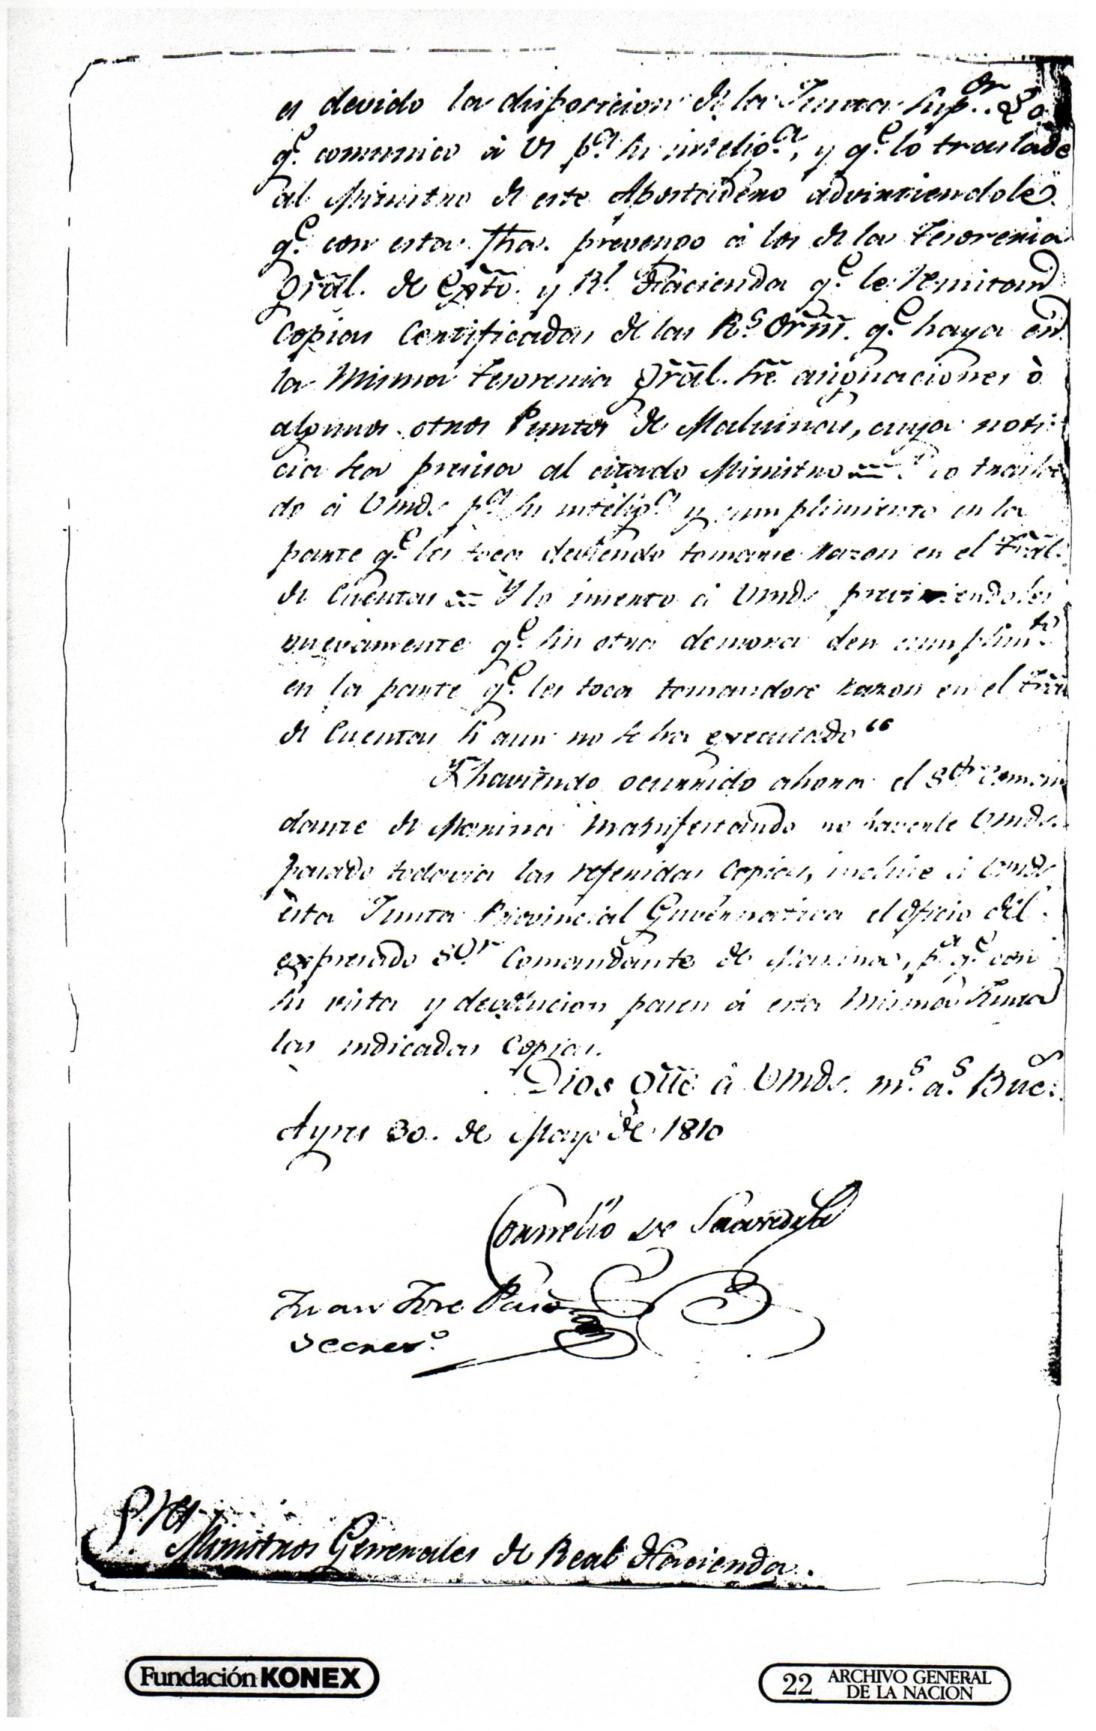 es devido la disposicion de la Junta Sup.or Lo
q.e comunico à VS p.a su inteligª, y q.e lo traslade
al Ministro de este Apostadero advirtiendole
q.e con esta fha. prevengo à los de la Tesoreria
Gral. de Exto. y Rl. Hacienda q.e le remitan
Copias Certificadas de las Rs. Orns. q.e haya en
la misma Tesoreria Gral. sre asignaciones ò
algunos otros Puntos de Malvinas, cuya noti-
cia sea precisa al citado Ministro = lo trasla-
do à Vmds. p.a su intelig.a y cumplimiento en la
parte q.e les toca deviendo tomarse razon en el Trãl.
de Cuentas = Y lo inserto à Vmds. previniendoles
nuevamente q.e sin otra demora den cumplim.to
en la parte q.e les toca tomandose razon en el Trãl
de Cuentas si aun no se ha executado"
Y haviendo ocurrido ahora el S.or Coman
dante de Marina manifestando no haverle Vmds.
pasado todavia las referidas Copias, incluie à Vmds
esta Junta Provincial Guvernativa el oficio del
expresado S.or Comandante de Marina, p.a q.e con
su vista y devolucion pasen à esta misma Junta
las indicadas Copias.
Dios gũe à Vmds. m.s a.s Bue.s
Ayres 30. de Mayo de 1810
Cornelio de Saavedra
Juan Jose Paso
Secret.o
S.res
Ministros Generales de Real Hacienda.
Fundación KONEX
22 ARCHIVO GENERAL
DE LA NACION